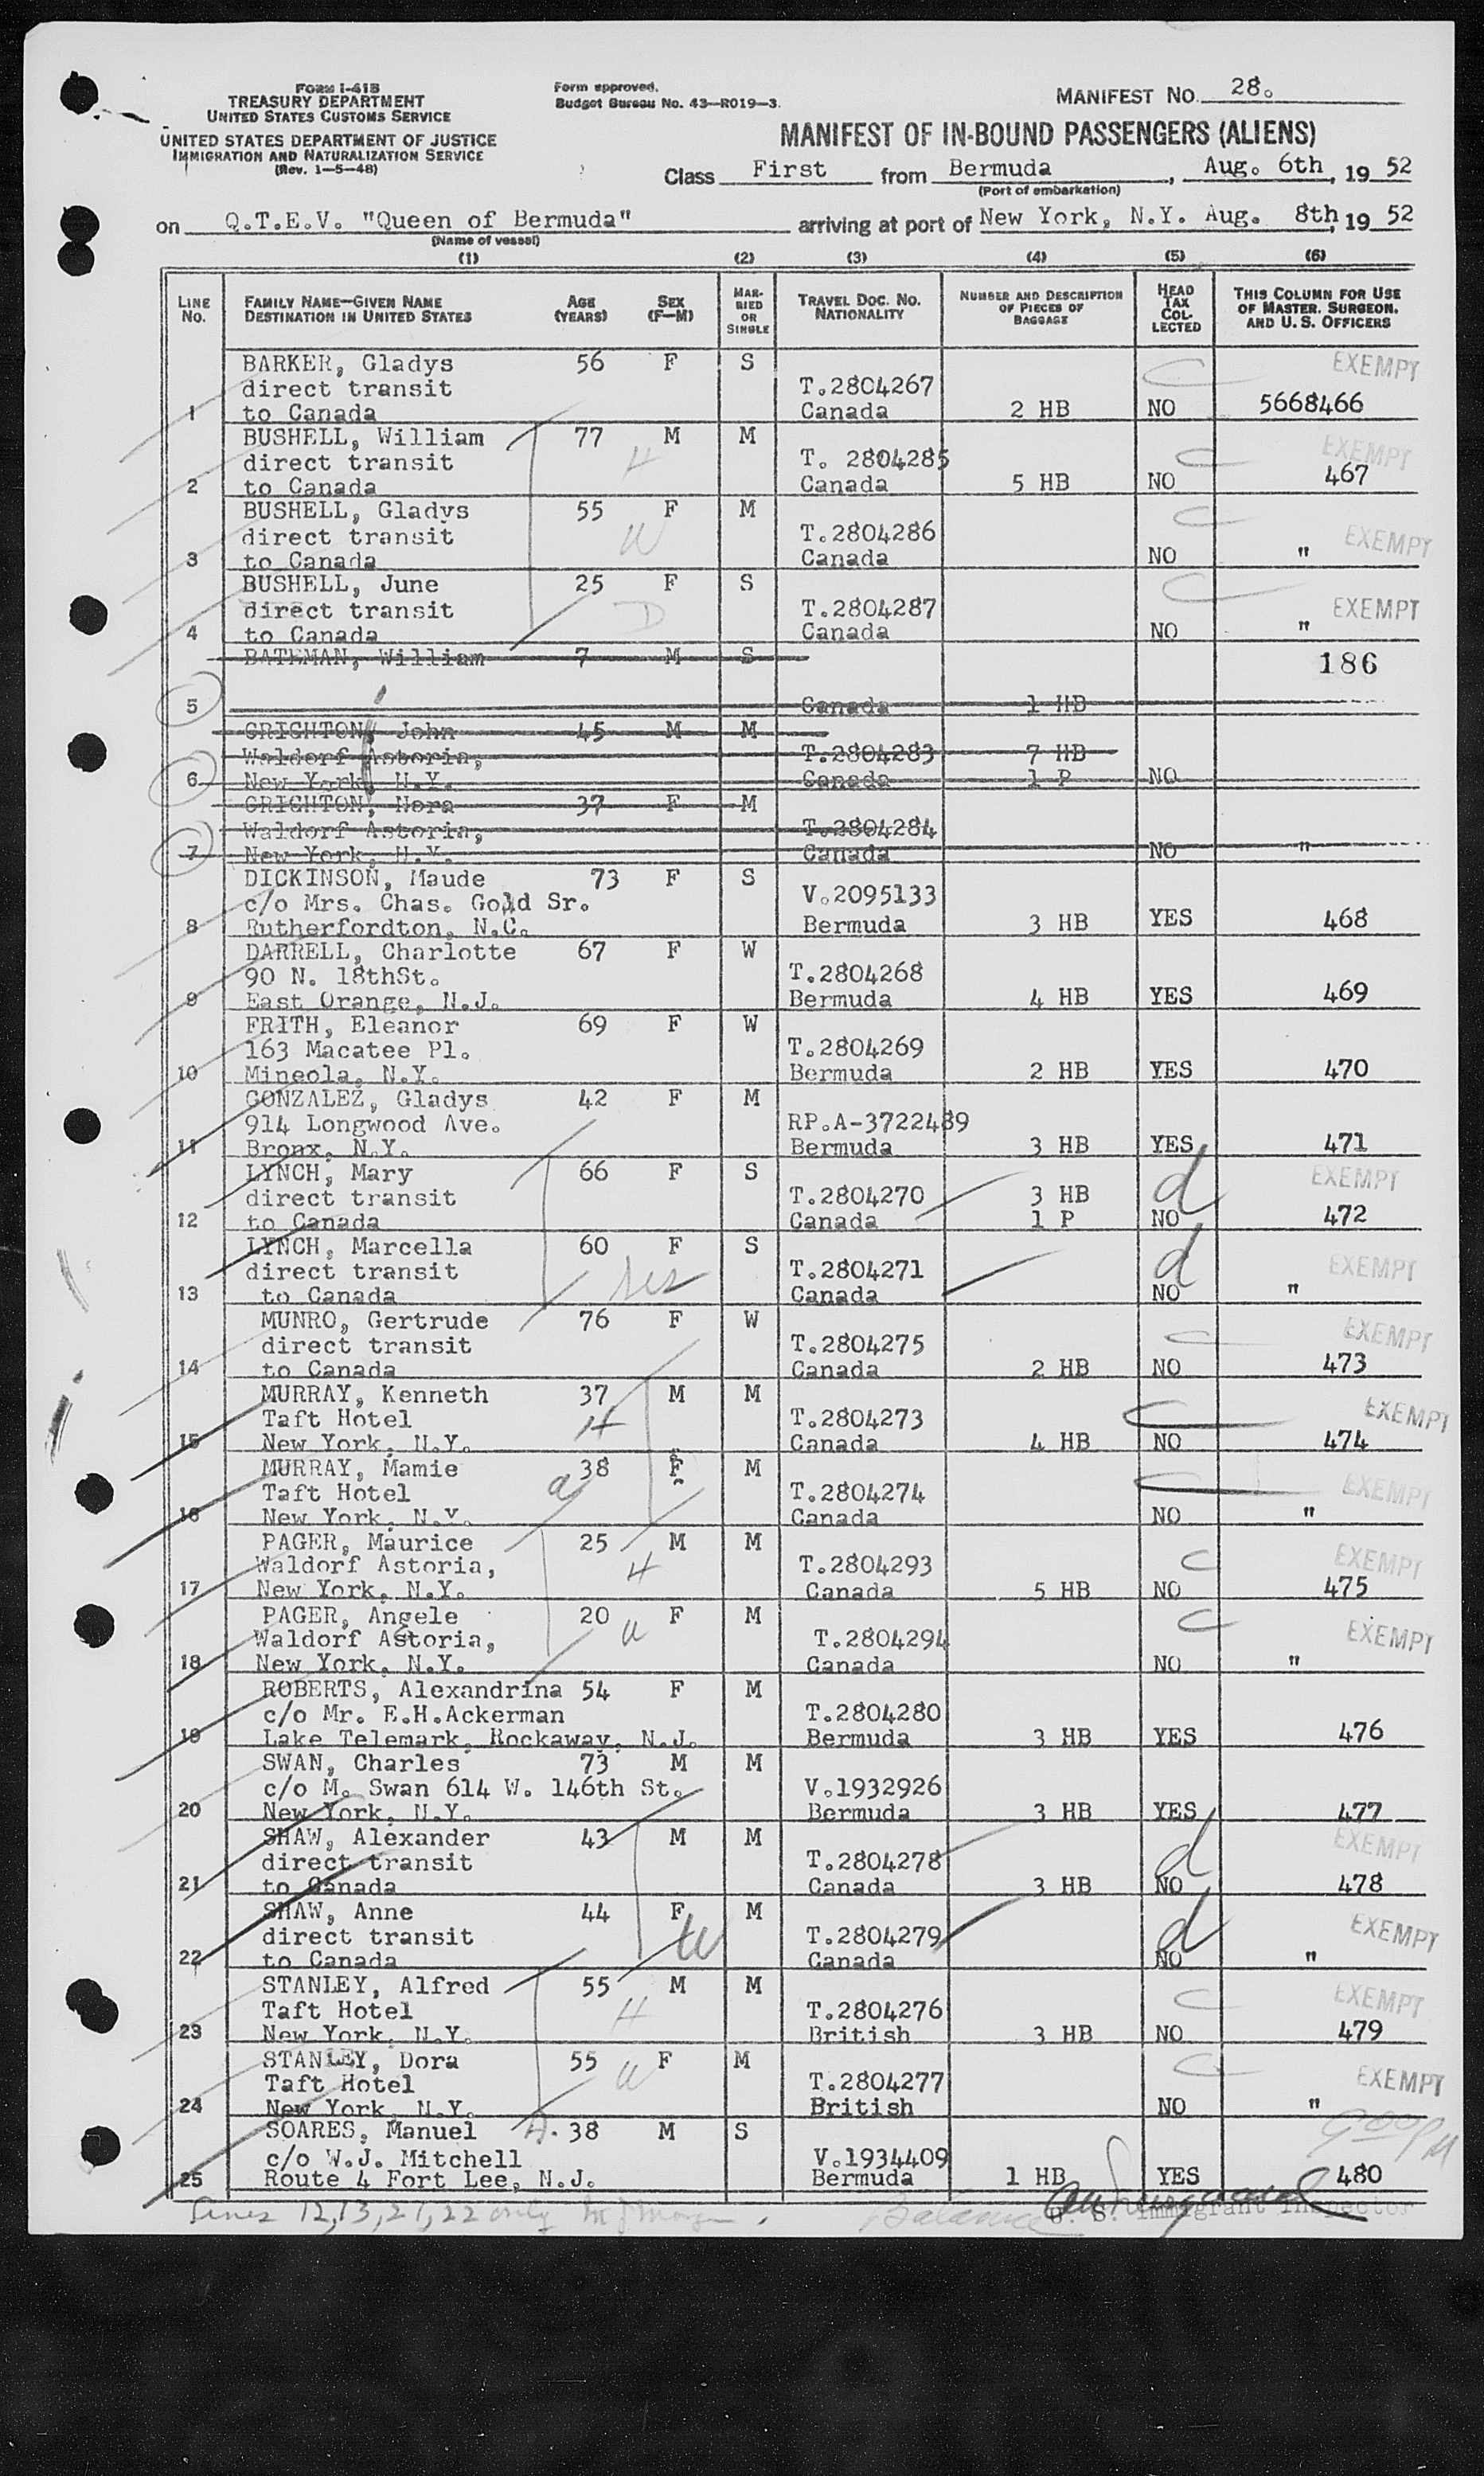 Form I-41B
TREASURY DEPARTMENT
UNITED STATES CUSTOMS SERVICE
UNITED STATES DEPARTMENT OF JUSTICE
IMMIGRATION AND NATURALIZATION SERVICE
(Rev. 1-5-48)
Form approved.
Budget Bureau No. 43-R019-3.
MANIFEST NO. 28.
MANIFEST OF IN-BOUND PASSENGERS (ALIENS)
Class First from Bermuda, Aug. 6th, 19 52
(Port of embarkation)
on Q.T.E.V. "Queen of Bermuda" arriving at port of New York, N.Y. Aug. 8th, 19 52
(Name of vessel)
(1) (2) (3) (4) (5) (6)
LINE No. FAMILY NAME—GIVEN NAME DESTINATION IN UNITED STATES AGE (YEARS) SEX (F—M) MARRIED OR SINGLE TRAVEL DOC. NO. NATIONALITY NUMBER AND DESCRIPTION OF PIECES OF BAGGAGE HEAD TAX COLLECTED THIS COLUMN FOR USE OF MASTER, SURGEON, AND U. S. OFFICERS
BARKER, Gladys 56 F S EXEMPT
direct transit T.2804267
1 to Canada Canada 2 HB NO 5668466
BUSHELL, William 77 M M EXEMPT
direct transit H T. 2804285
2 to Canada Canada 5 HB NO 467
BUSHELL, Gladys 55 F M
direct transit W T.2804286 EXEMPT
3 to Canada Canada NO "
BUSHELL, June 25 F S
direct transit D T.2804287 EXEMPT
4 to Canada Canada NO "
BATEMAN, William 7 M S 186
5 Canada 1 HB
CRICHTON, John 45 M M
Waldorf Astoria, T.2804283 7 HB
6 New York, N.Y. Canada 1 P NO
CRICHTON, Nora 37 F M
Waldorf Astoria, T.2804284
7 New York, N.Y. Canada NO "
DICKINSON, Maude 73 F S
c/o Mrs. Chas. Gold Sr. V.2095133
8 Rutherfordton, N.C. Bermuda 3 HB YES 468
DARRELL, Charlotte 67 F W
90 N. 18thSt. T.2804268
9 East Orange, N.J. Bermuda 4 HB YES 469
FRITH, Eleanor 69 F W
163 Macatee Pl. T.2804269
10 Mineola, N.Y. Bermuda 2 HB YES 470
GONZALEZ, Gladys 42 F M
914 Longwood Ave. RP.A-3722489
11 Bronx, N.Y. Bermuda 3 HB YES 471
LYNCH, Mary 66 F S EXEMPT
direct transit T.2804270 3 HB d
12 to Canada Canada 1 P NO 472
LYNCH, Marcella 60 F S
direct transit T.2804271 d EXEMPT
13 to Canada Canada NO "
MUNRO, Gertrude 76 F W EXEMPT
direct transit T.2804275
14 to Canada Canada 2 HB NO 473
MURRAY, Kenneth 37 M M EXEMPT
Taft Hotel H T.2804273
15 New York, N.Y. Canada 4 HB NO 474
MURRAY, Mamie 38 F M
Taft Hotel T.2804274 EXEMPT
16 New York, N.Y. Canada NO "
PAGER, Maurice 25 M M EXEMPT
Waldorf Astoria, H T.2804293
17 New York, N.Y. Canada 5 HB NO 475
PAGER, Angele 20 F M
Waldorf Astoria, T.2804294 EXEMPT
18 New York, N.Y. Canada NO "
ROBERTS, Alexandrina 54 F M
c/o Mr. E.H.Ackerman T.2804280
19 Lake Telemark, Rockaway, N.J. Bermuda 3 HB YES 476
SWAN, Charles 73 M M
c/o M. Swan 614 W. 146th St. V.1932926
20 New York, N.Y. Bermuda 3 HB YES 477
SHAW, Alexander 43 M M EXEMPT
direct transit T.2804278 d
21 to Canada Canada 3 HB NO 478
SHAW, Anne 44 F M
direct transit W T.2804279 d EXEMPT
22 to Canada Canada NO "
STANLEY, Alfred 55 M M EXEMPT
Taft Hotel H T.2804276
23 New York, N.Y. British 3 HB NO 479
STANLEY, Dora 55 F M
Taft Hotel T.2804277 EXEMPT
24 New York, N.Y. British NO "
SOARES, Manuel 38 M S
c/o W.J. Mitchell V.1934409
25 Route 4 Fort Lee, N.J. Bermuda 1 HB YES 480
Lines 12,13,21,22 only
Balance
U. S. Immigrant Inspector